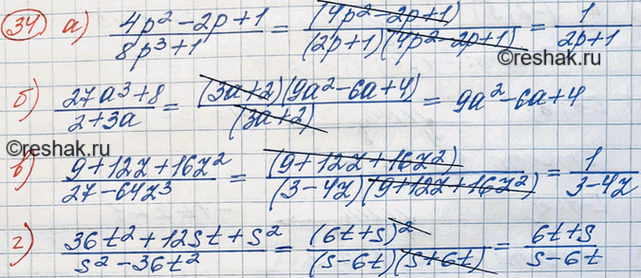 34 а) (4p² - 2p + 1)/(8p³ + 1) = (4p² - 2p + 1)/((2p + 1)(4p² - 2p + 1)) = 1/(2p + 1)
©reshak.ru
б) (27a³ + 8)/(2 + 3a) = ((3a + 2)(9a² - 6a + 4))/(3a + 2) = 9a² - 6a + 4
©reshak.ru
в) (9 + 12z + 16z²)/(27 - 64z³) = (9 + 12z + 16z²)/((3 - 4z)(9 + 12z + 16z²)) = 1/(3 - 4z)
г) (36t² + 12st + s²)/(s² - 36t²) = (6t + s)²/((s - 6t)(s + 6t)) = (6t + s)/(s - 6t)